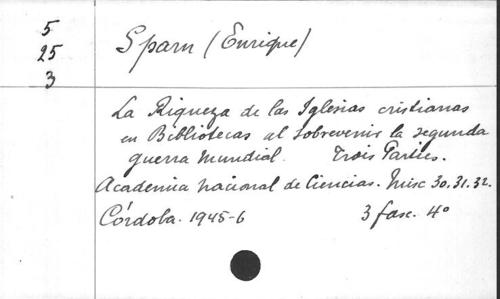 5
25
3
Sparn (Enrique)
La Riqueza de las Iglesias cristianas
en Bibliotecas al sobrevenir la segunda
guerra mundial. Trois Parties.
Academia nacional de Ciencias. Misc 30.31.32.
Córdoba. 1945-6 3 fasc. 4º